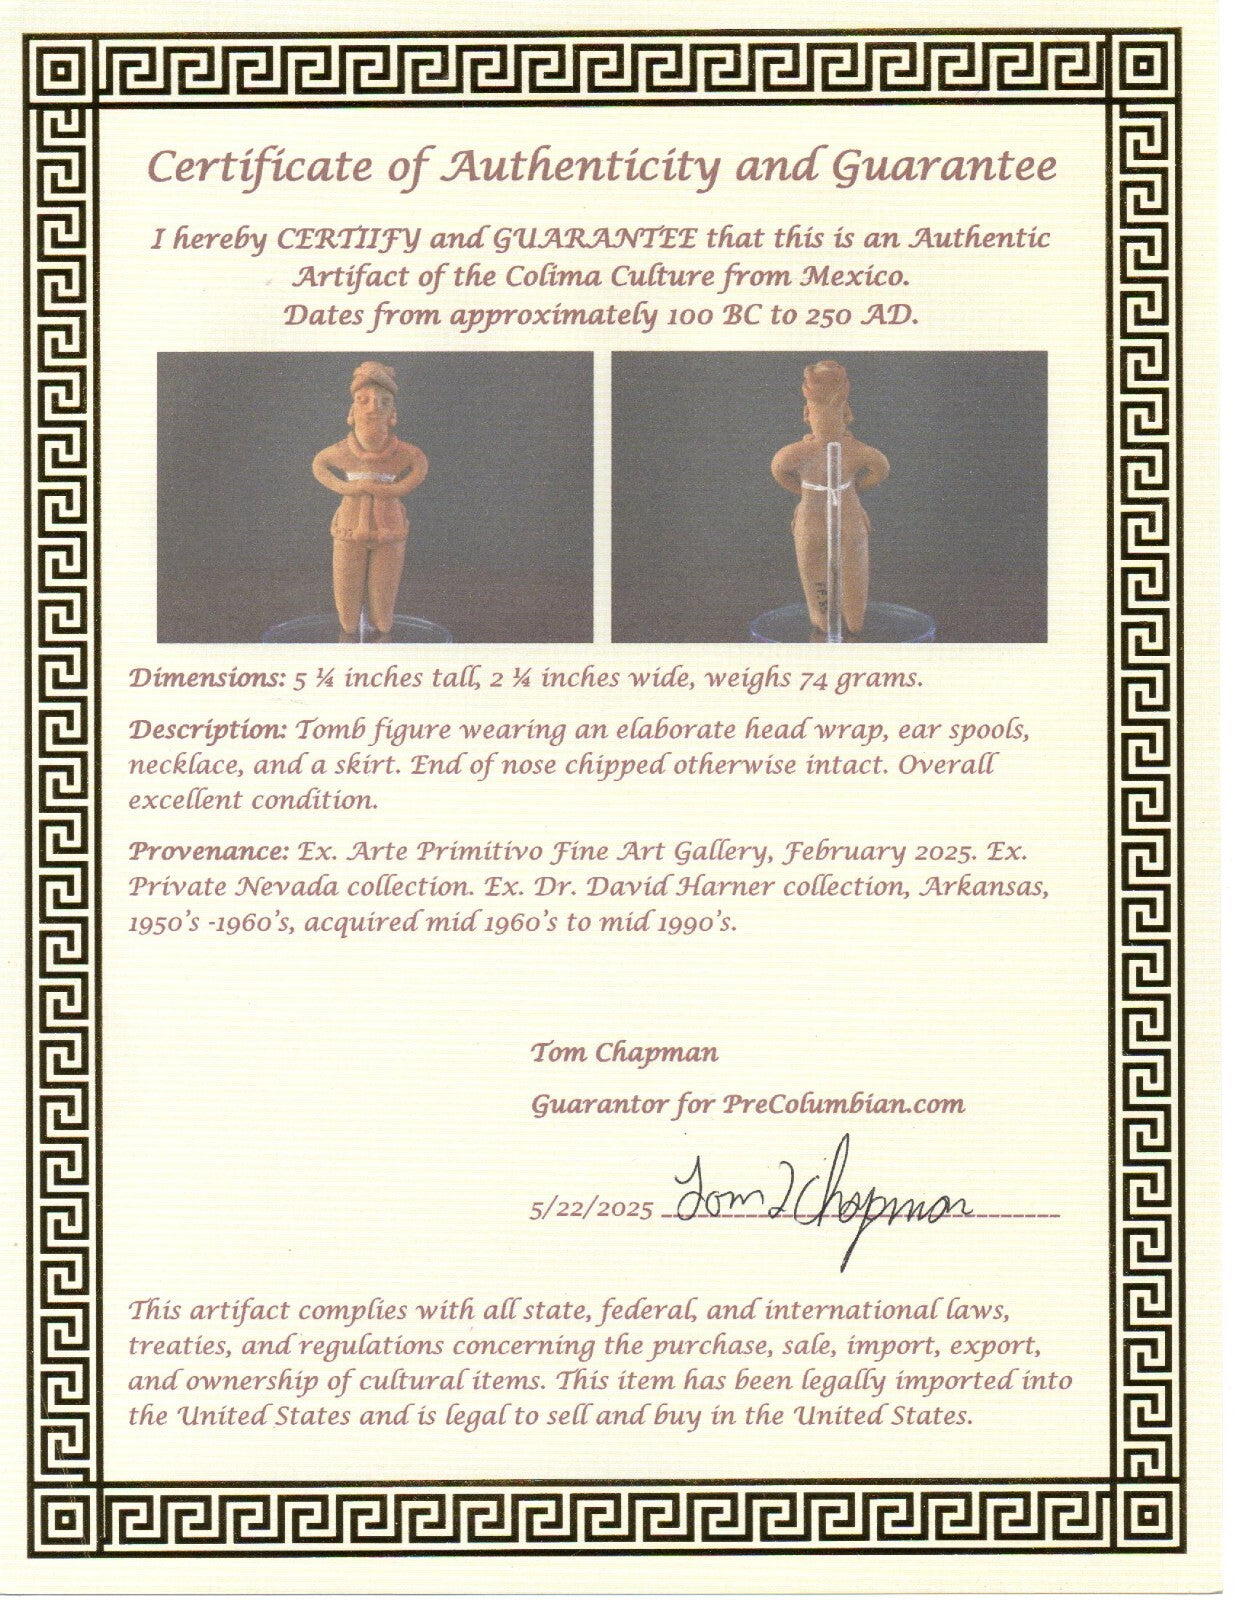 Certificate of Authenticity and Guarantee
I hereby CERTIIFY and GUARANTEE that this is an Authentic
Artifact of the Colima Culture from Mexico.
Dates from approximately 100 BC to 250 AD.
Dimensions: 5 ¼ inches tall, 2 ¼ inches wide, weighs 74 grams.
Description: Tomb figure wearing an elaborate head wrap, ear spools,
necklace, and a skirt. End of nose chipped otherwise intact. Overall
excellent condition.
Provenance: Ex. Arte Primitivo Fine Art Gallery, February 2025. Ex.
Private Nevada collection. Ex. Dr. David Harner collection, Arkansas,
1950's -1960's, acquired mid 1960's to mid 1990's.
Tom Chapman
Guarantor for PreColumbian.com
5/22/2025 Tom Chapman
This artifact complies with all state, federal, and international laws,
treaties, and regulations concerning the purchase, sale, import, export,
and ownership of cultural items. This item has been legally imported into
the United States and is legal to sell and buy in the United States.